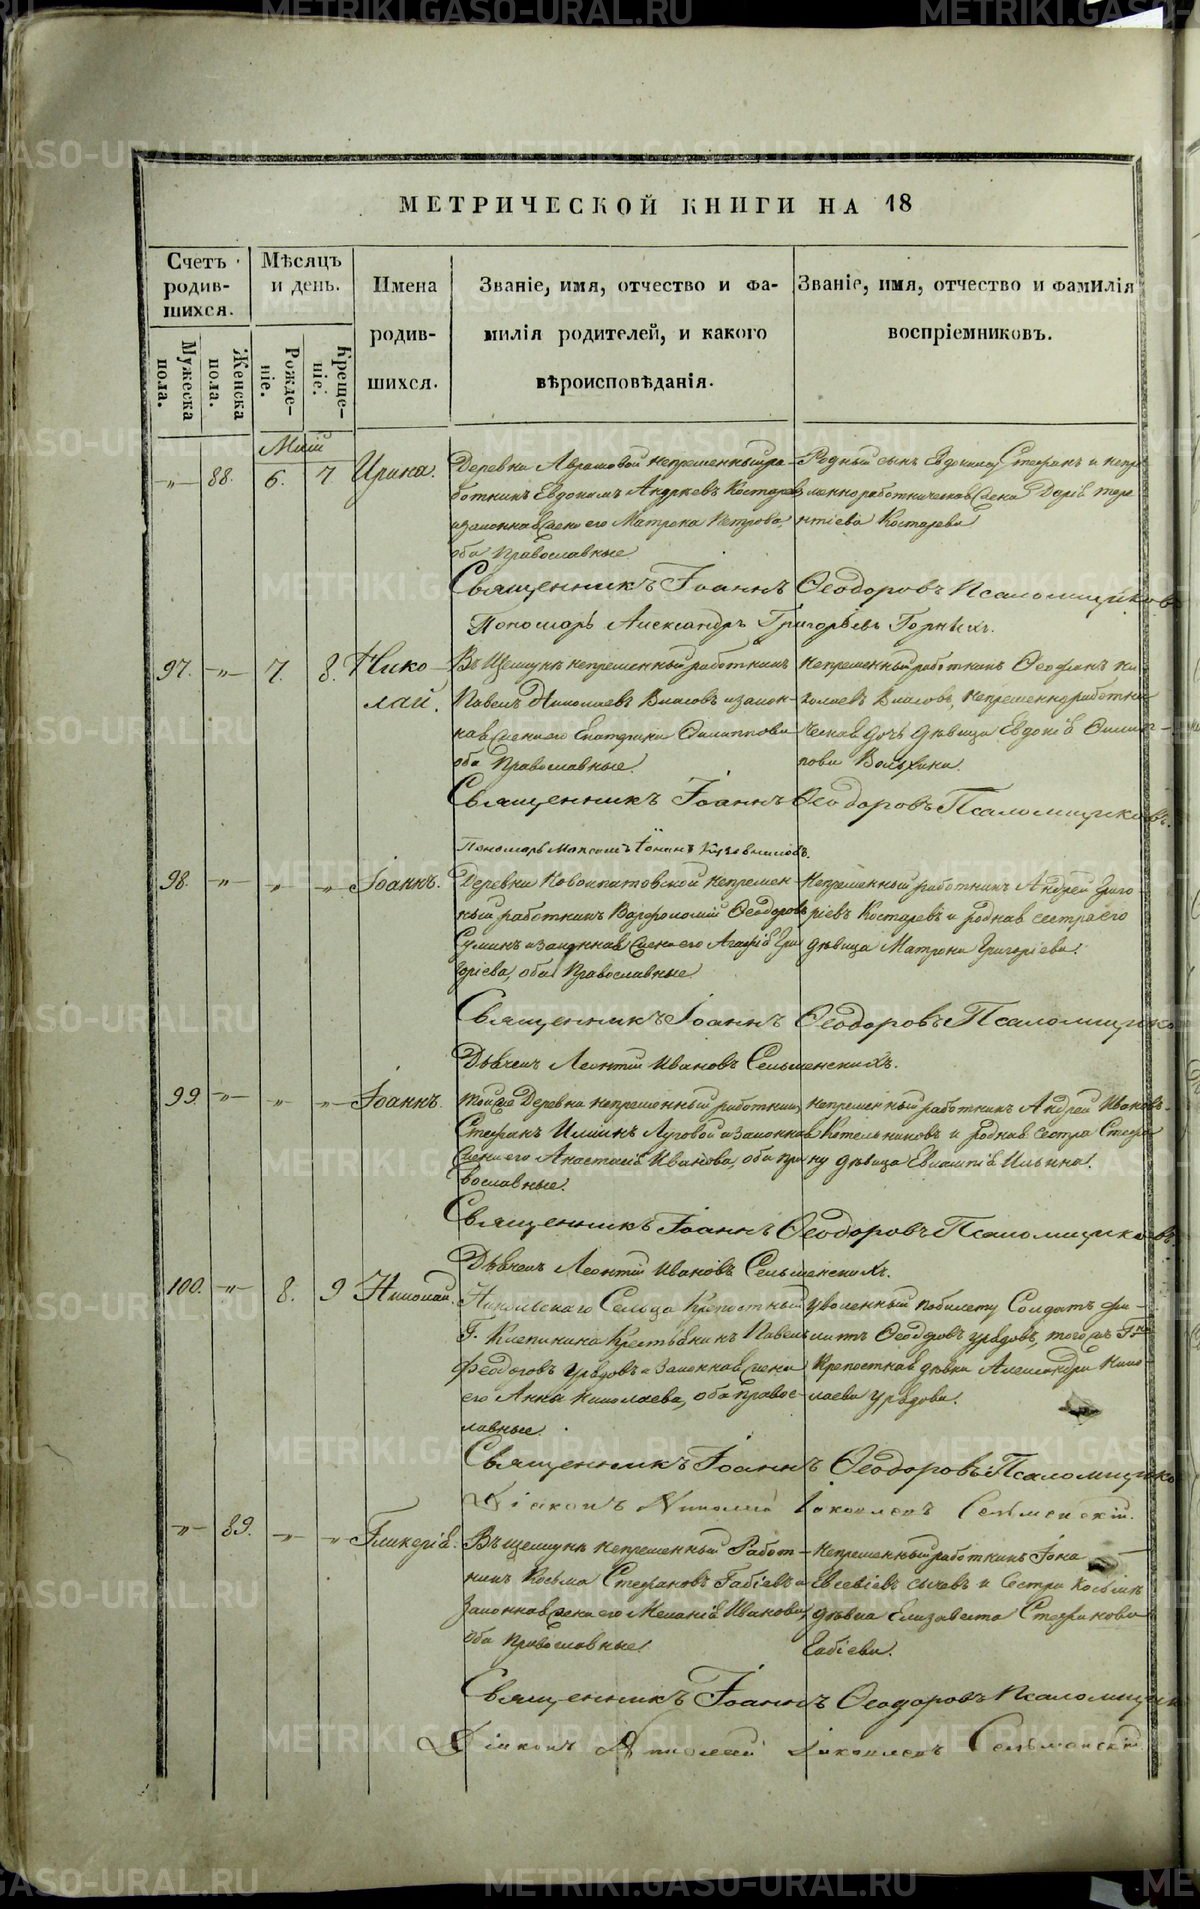 МЕТРИЧЕСКОЙ КНИГИ НА 18
Счетъ родив-шихся.
Мѣсяцъ и день.
Имена родив-шихся.
Званіе, имя, отчество и фа-
милія родителей, и какого
вѣроисповѣданія.
Званіе, имя, отчество и фамилія
воспріемниковъ.
Мужеска пола.
Женска пола.
Рожде-ніе.
Креще-ніе.
Маій
-"- 88. 6. 7 Ирина.
Деревни Абрамовой непременный ра-
ботникъ Евдокимъ Андреевъ Костаревъ
и законная жена его Матрона Петрова,
оба Православные
Родный сынъ Евдокима Стефанъ и непре-
менно работническая жена Дарія Тере
нтіева Костарева
Священникъ Іоаннъ Ѳеодоровъ Псаломщиковъ
Пономарь Александръ Григорьевъ Горныхъ.
97. -"- 7. 8. Нико
лай.
Въ Щелкунѣ непременный работникъ
Павелъ Николаевъ Власовъ и закон-
ная жена его Екатерина Филиппова
оба Православные.
непременный работникъ Ѳеофанъ Ни
колаевъ Власовъ, непременно работни
ческая дочь дѣвица Евдокія Филип-
пова
Священникъ Іоаннъ Ѳеодоровъ Псаломщиковъ.
Пономарь Максимъ
98. -"- -"- -"- Іоаннъ.
Деревни Новоипатовской непремен-
ный работникъ Варфоломей Ѳеодоровъ
и законная жена его Агафія Гри
горіева, оба Православные
Непременный работникъ Андрей Григо-
ріевъ Костаревъ и родная сестра его
дѣвица Матрона Григоріева.
Священникъ Іоаннъ Ѳеодоровъ Псаломщико
Дьячекъ Леонтій Ивановъ Сельменскихъ.
99. -"- -"- -"- Іоаннъ.
Тойже Деревни непременный работникъ
Стефанъ Ильинъ Луговой и законная
жена его Анастасія Иванова, оба пра
вославные.
непременный работникъ Андрей Ивановъ
Котельниковъ и родная сестра Стефа
ну дѣвица Евлампія Ильина.
Священникъ Іоаннъ Ѳеодоровъ Псаломщиковъ
Дьячекъ Леонтій Ивановъ Сельменскихъ.
100. -"- 8. 9 Николай.
Никольскаго Сельца Крепостный
Г. Клепинина Крестьянинъ Павелъ
Феодоровъ Урядовъ и Законная жена
его Анна Николаева, оба Правос-
лавные.
уволенный по билету Солдатъ Фи-
липъ Ѳеодоровъ Урядовъ, тогожъ Гна
Крепостная дѣвка Александра Нико-
лаева Урядова.
Священникъ Іоаннъ Ѳеодоровъ Псаломщико
Діаконъ Николай Іаковлевъ Сельменскій.
-"- 89. -"- -"- Гликерія.
Въ Щелкунѣ непременный Работ-
никъ Косьма Стефановъ Бабіевъ и
Законная жена его Меланія Иванова,
Оба Православные.
Непременный работникъ Іона
Евсевіевъ Сычевъ и Сестра Косьмѣ
дѣвка Елизавета Стефанова
Бабіева.
Священникъ Іоаннъ Ѳеодоровъ Псаломщик
Діаконъ Николай Іаковлевъ Сельменскій.
METRIKI.GASO-URAL.RU